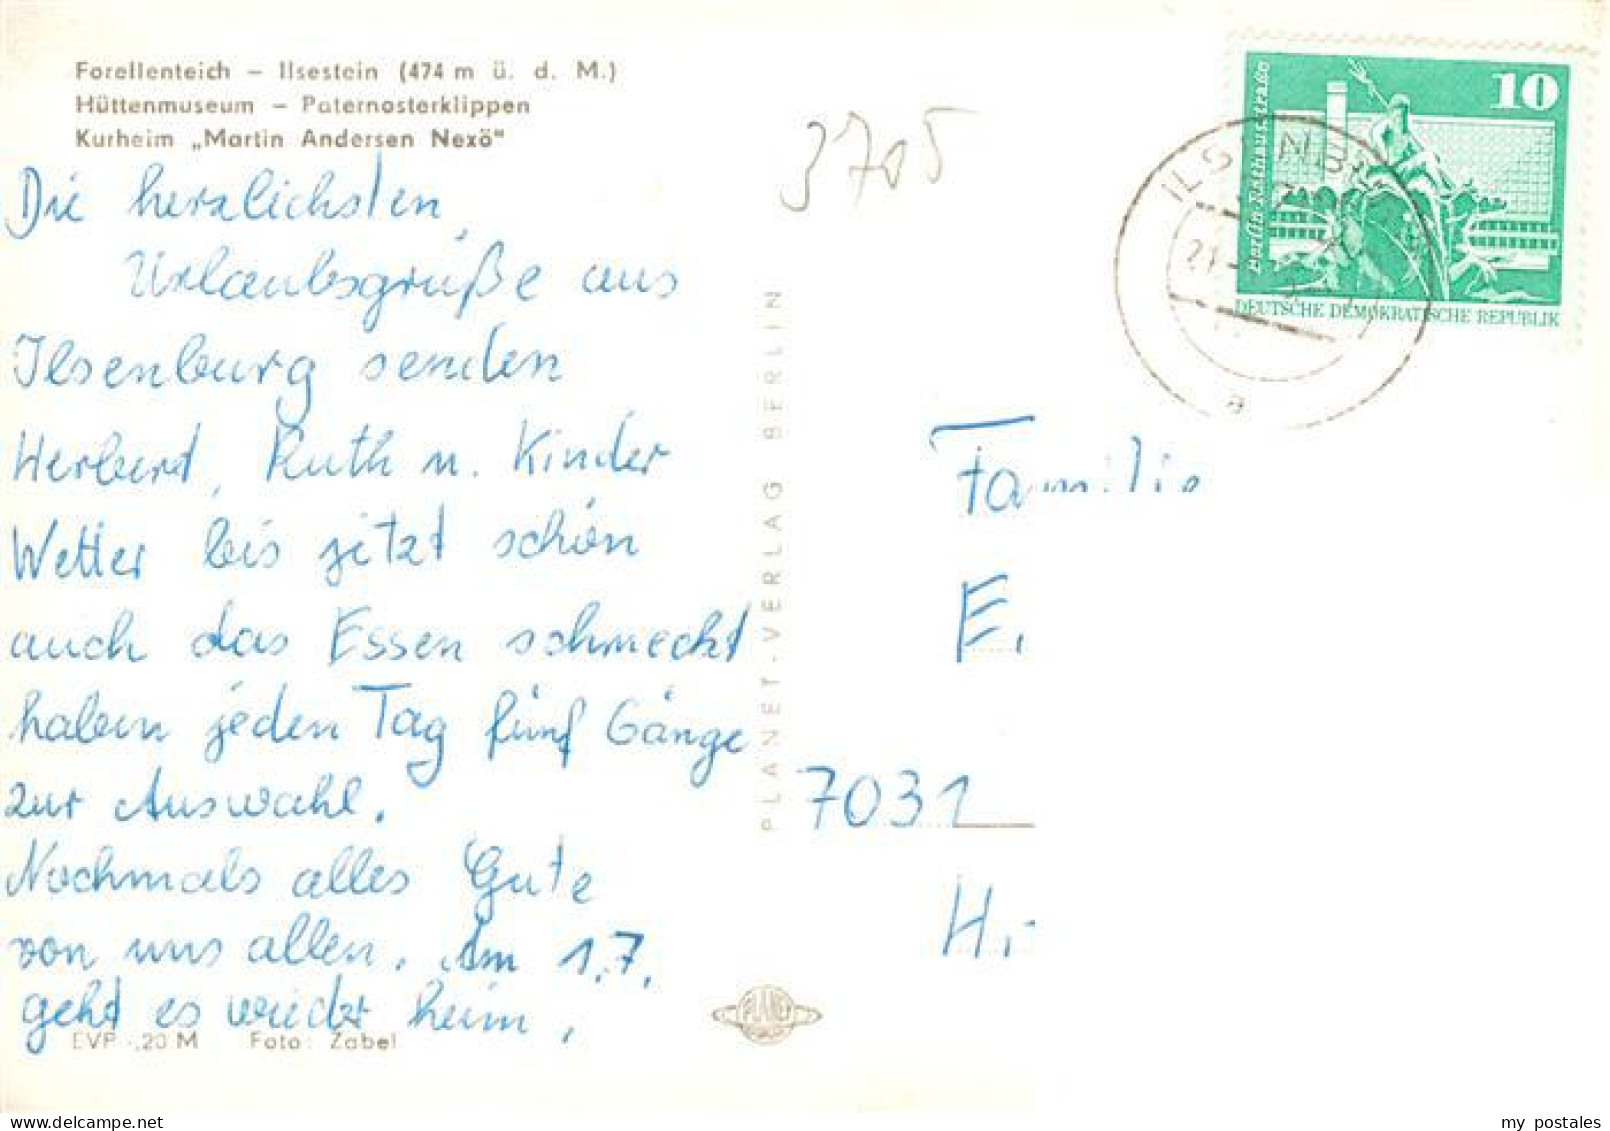 Forellenteich – Ilsestein (474 m ü. d. M.)
Hüttenmuseum – Paternosterklippen
Kurheim „Martin Andersen Nexö"
Die herzlichsten
Urlaubsgrüße aus
Ilsenburg senden
Herbert, Ruth u. Kinder
Wetter bis jetzt schön
auch das Essen schmeckt
haben jeden Tag fünf Gänge
zur Auswahl.
Nochmals alles Gute
von uns allen. Am 1.7.
geht es wieder heim.
EVP -,20 M Foto: Zabel
PLANET-VERLAG BERLIN
PLANET
3705
10
Berlin Rathausstraße
DEUTSCHE DEMOKRATISCHE REPUBLIK
a
Familie
E.
7031
H.
www.delcampe.net
my_postales